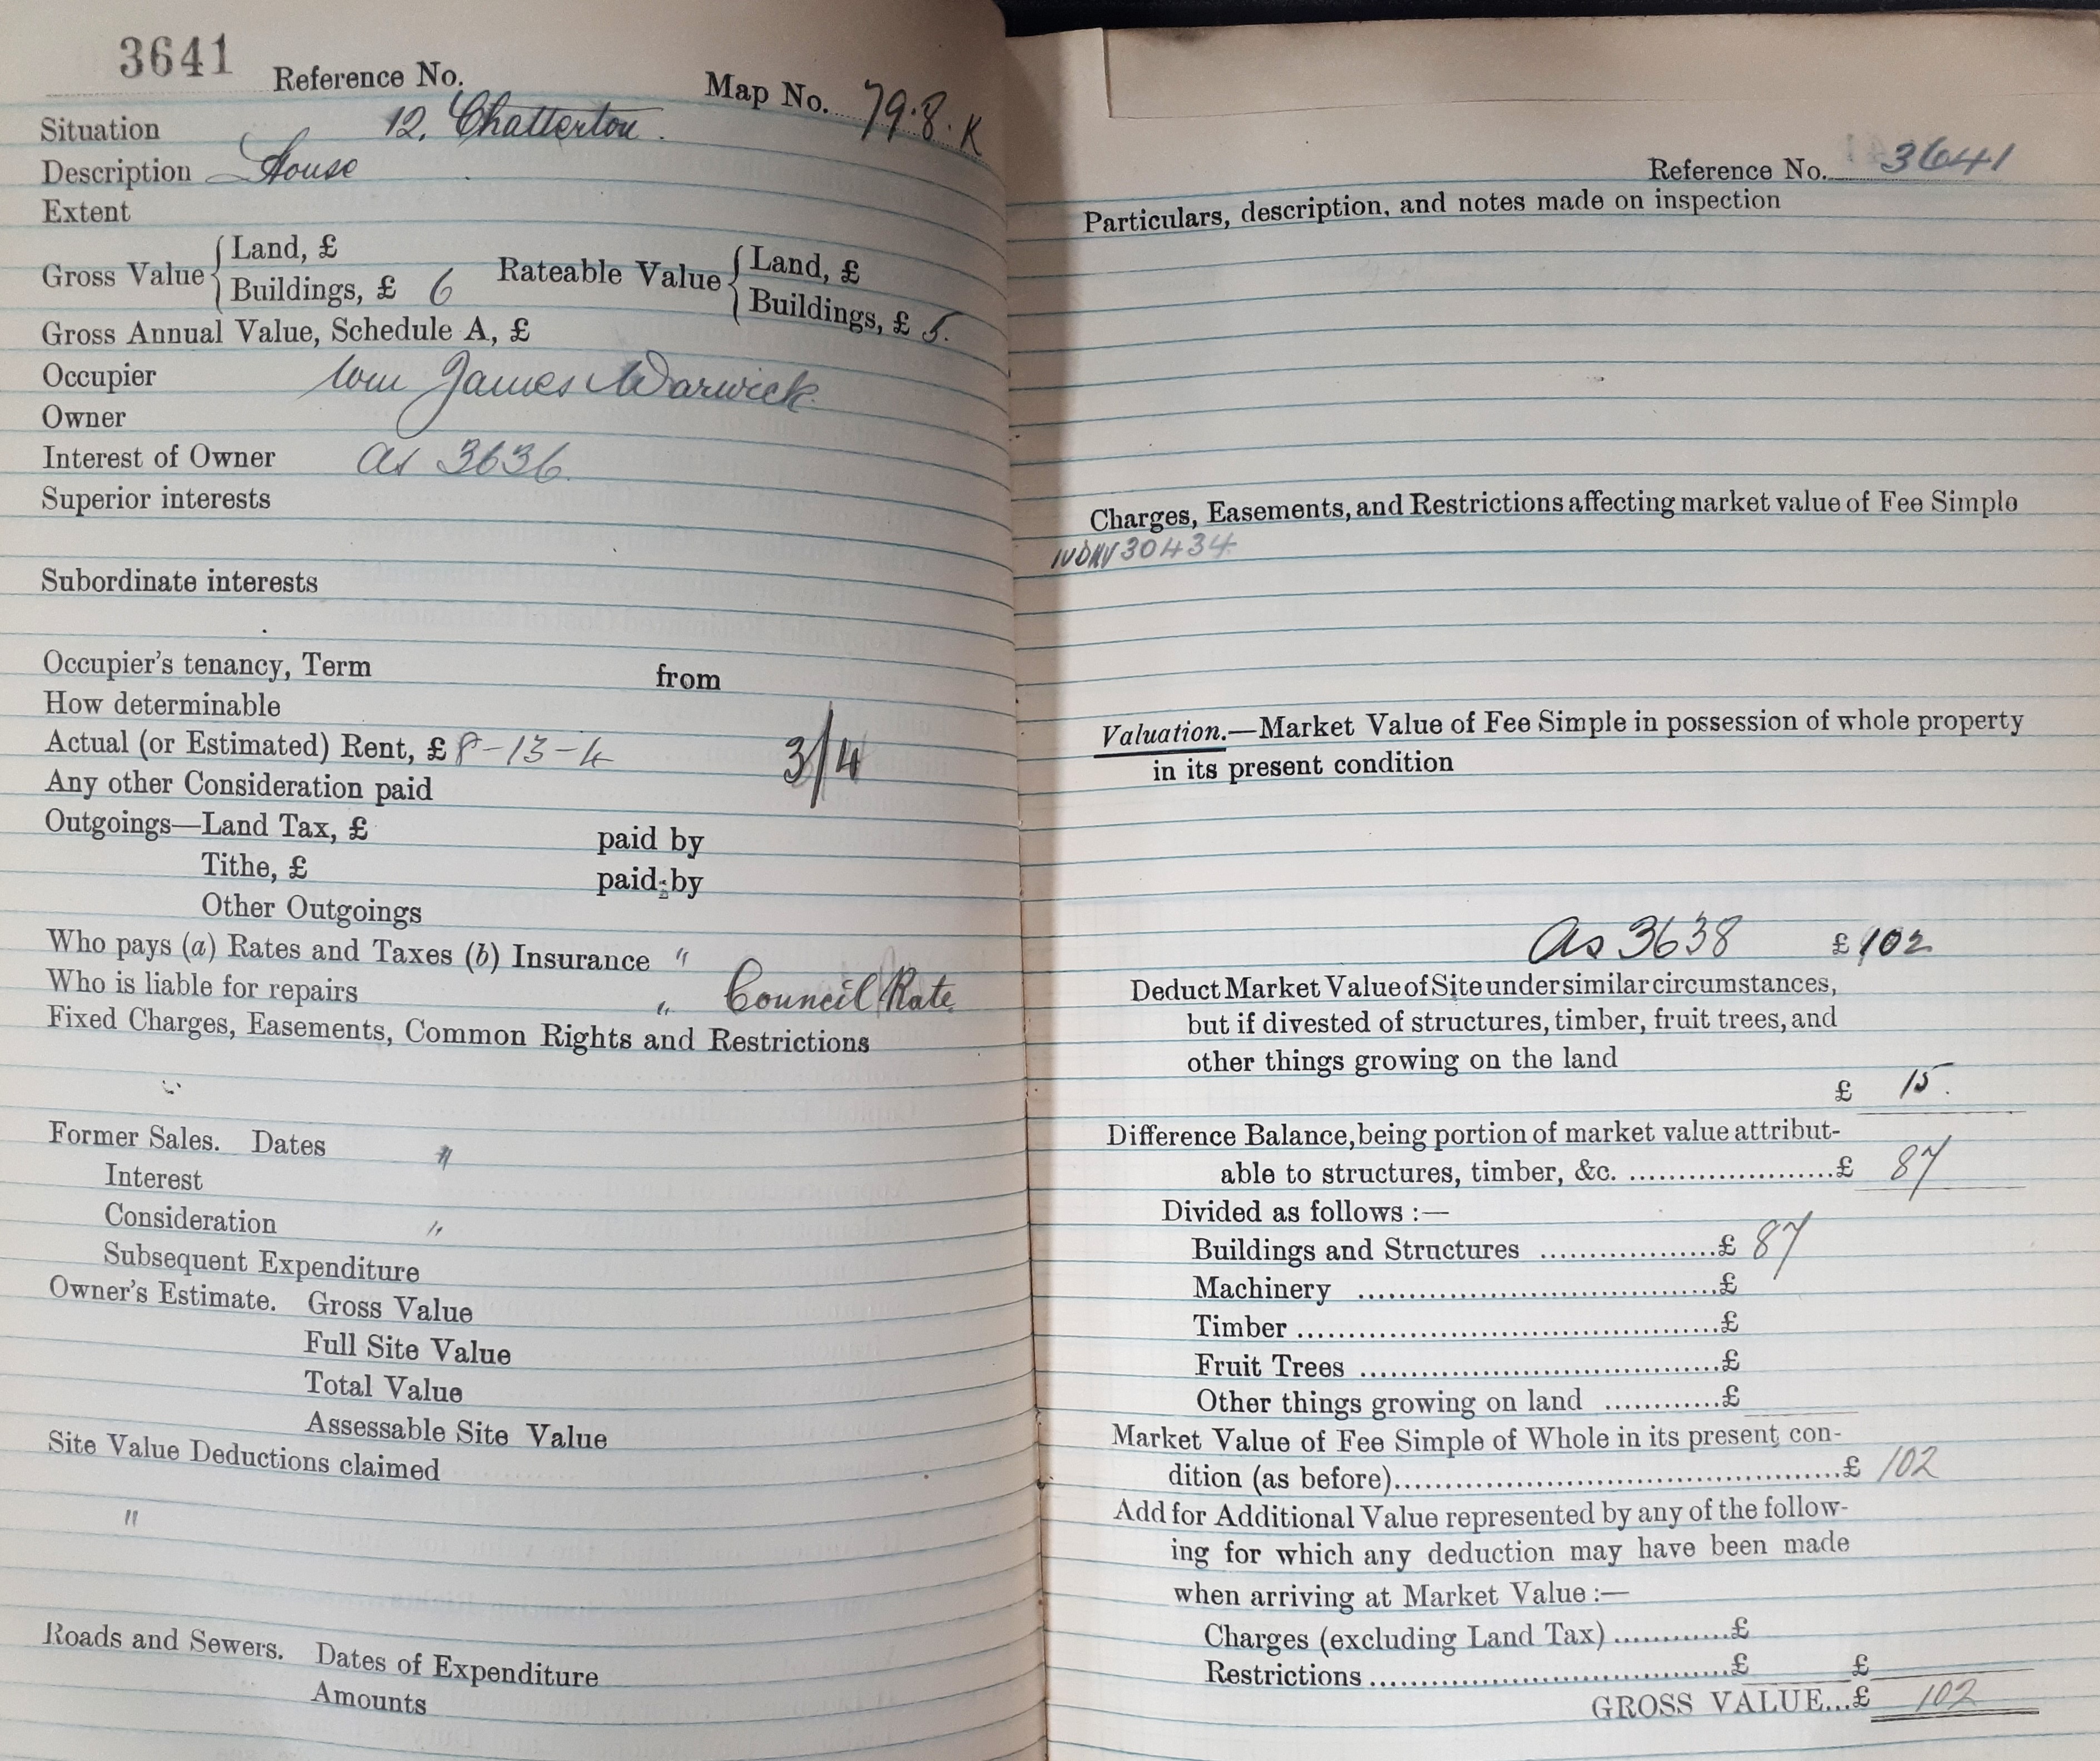 3641 Reference No. Map No. 79.8.K
Situation 12, Chatterton.
Description House
Extent
Gross Value { Land, £
Buildings, £ 6
Rateable Value { Land, £
Buildings, £ 5.
Gross Annual Value, Schedule A, £
Occupier Wm James Warwick
Owner
Interest of Owner as 3636.
Superior interests
Subordinate interests
Occupier's tenancy, Term from
How determinable
Actual (or Estimated) Rent, £ 8-13-4 3/4
Any other Consideration paid
Outgoings—Land Tax, £ paid by
Tithe, £ paid by
Other Outgoings
Who pays (a) Rates and Taxes (b) Insurance "
Who is liable for repairs " Council Rate.
Fixed Charges, Easements, Common Rights and Restrictions
Former Sales. Dates "
Interest
Consideration "
Subsequent Expenditure
Owner's Estimate. Gross Value
Full Site Value
Total Value
Assessable Site Value
Site Value Deductions claimed
"
Roads and Sewers. Dates of Expenditure
Amounts
Reference No. 3641
Particulars, description, and notes made on inspection
Charges, Easements, and Restrictions affecting market value of Fee Simple
30434
Valuation.—Market Value of Fee Simple in possession of whole property
in its present condition
As 3638 £ 102
Deduct Market Value of Site under similar circumstances,
but if divested of structures, timber, fruit trees, and
other things growing on the land
£ 15.
Difference Balance, being portion of market value attribut-
able to structures, timber, &c. ....................£ 87
Divided as follows :—
Buildings and Structures ..................£ 87
Machinery ....................................£
Timber ..........................................£
Fruit Trees ....................................£
Other things growing on land ............£
Market Value of Fee Simple of Whole in its present con-
dition (as before).............................................£ 102
Add for Additional Value represented by any of the follow-
ing for which any deduction may have been made
when arriving at Market Value :—
Charges (excluding Land Tax) ............£
Restrictions ....................................£ £
GROSS VALUE...£ 102